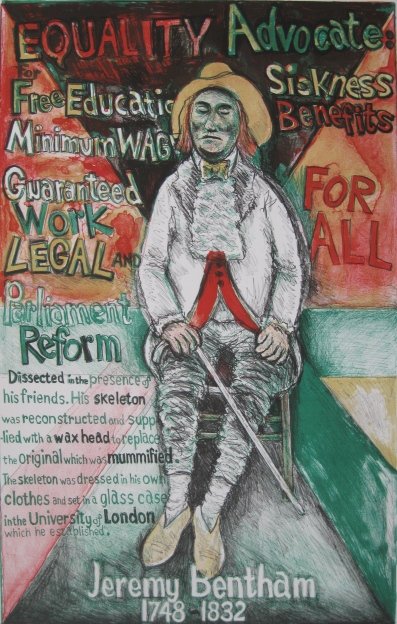 EQUALITY Advocate:
for
Free Educatio
Minimum WAGE
Sickness
Benefits
Guaranteed
Work
LEGAL AND
FOR
ALL
Parliament
Reform
Dissected in the presence of
his friends. His skeleton
was reconstructed and supp
-lied with a wax head to replace
the original which was mummified.
The skeleton was dressed in his own
clothes and set in a glass case
in the University of London
which he established.
Jeremy Bentham
1748-1832